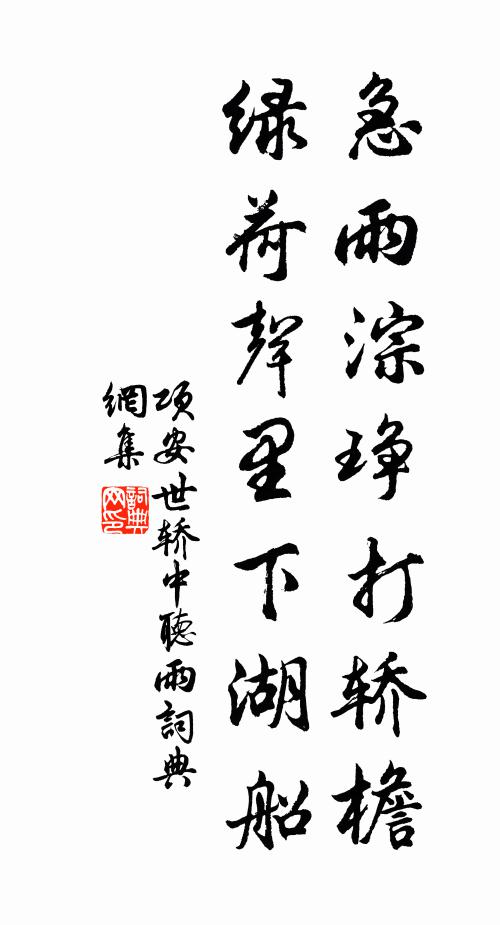 急雨淙琤打轿檐
绿荷聲里下湖船
项安世轿中聽雨詞典
網集
詞典网印